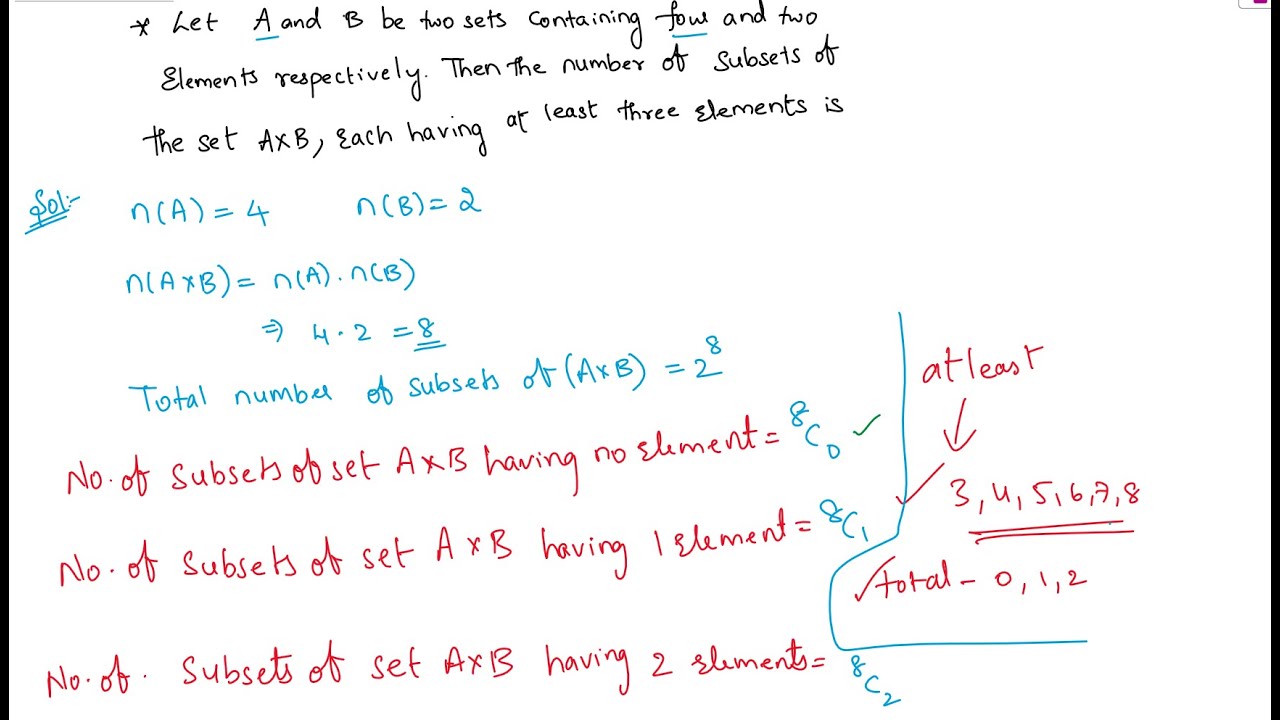 * Let A and B be two sets containing four and two
Elements respectively. Then the number of subsets of
the set A×B, Each having at least three elements is
Sol:-
n(A) = 4 n(B) = 2
n(A×B) = n(A) . n(B)
⇒ 4 . 2 = 8
Total number of subsets of (A×B) = 2⁸
No. of subsets of set A×B having no element = ⁸C₀ ✓
No. of subsets of set A×B having 1 element = ⁸C₁
No. of. subsets of set A×B having 2 elements = ⁸C₂
at least
↓
✓ 3, 4, 5, 6, 7, 8
✓ total - 0, 1, 2